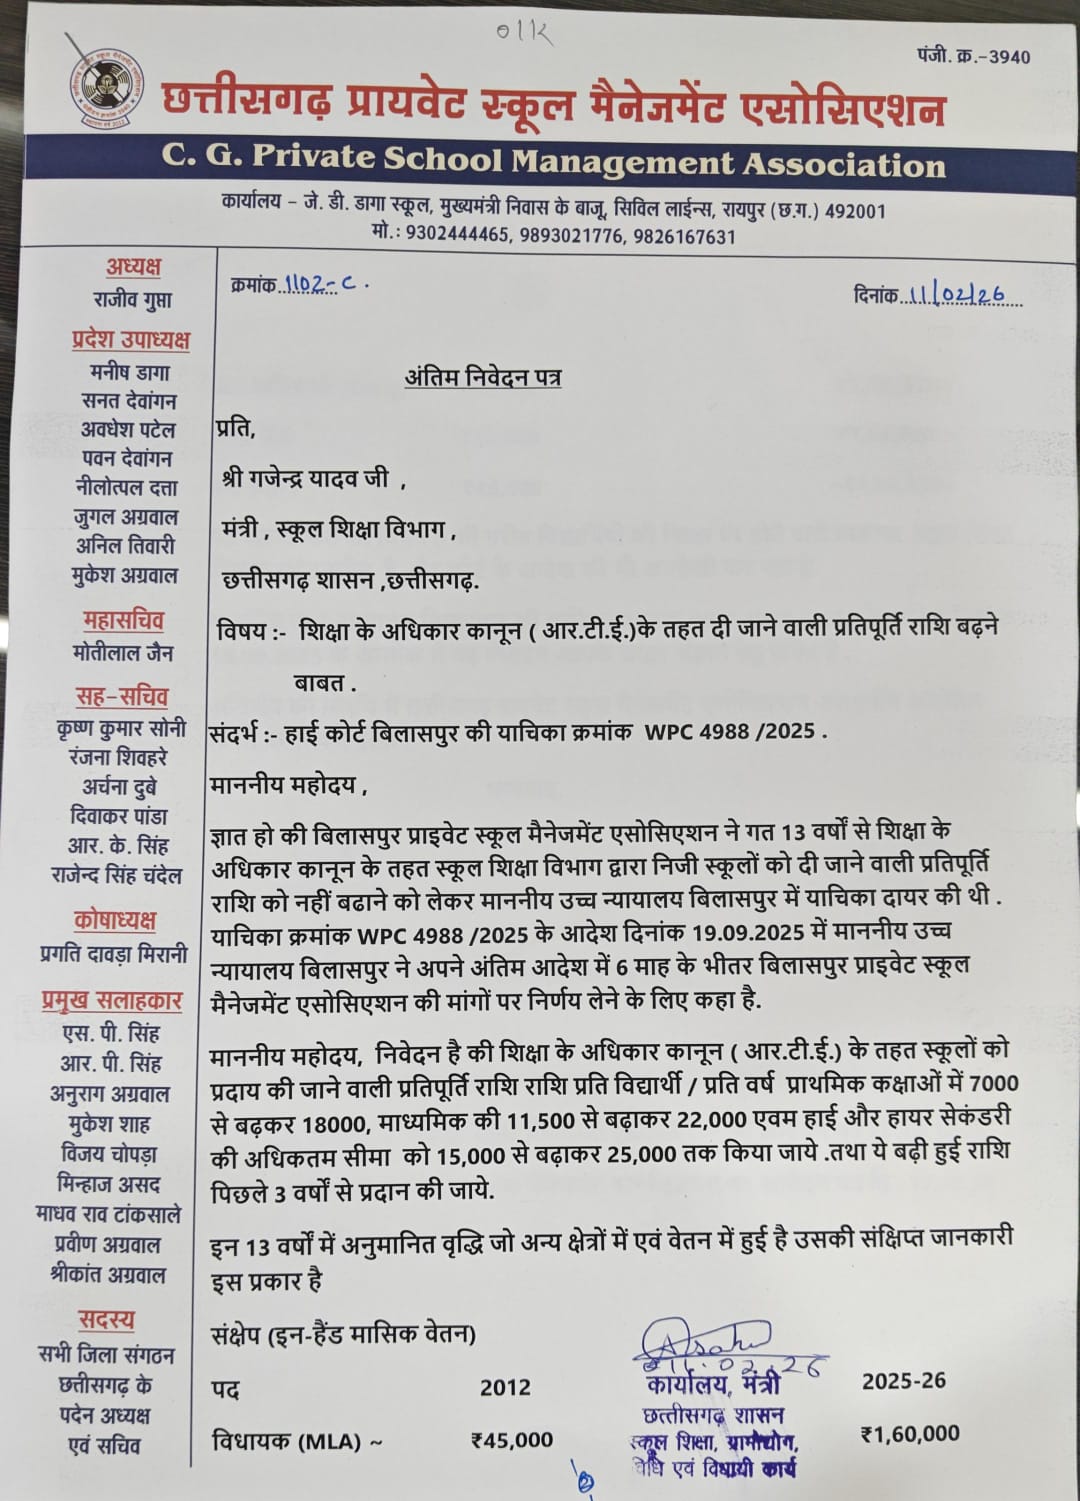 पंजी. क्र.-3940
छत्तीसगढ़ प्रायवेट स्कूल मैनेजमेंट एसोसिएशन
C. G. Private School Management Association
कार्यालय – जे. डी. डागा स्कूल, मुख्यमंत्री निवास के बाजू, सिविल लाईन्स, रायपुर (छ.ग.) 492001
मो.: 9302444465, 9893021776, 9826167631
अध्यक्ष
राजीव गुप्ता
प्रदेश उपाध्यक्ष
मनीष डागा
सनत देवांगन
अवधेश पटेल
पवन देवांगन
नीलोत्पल दत्ता
जुगल अग्रवाल
अनिल तिवारी
मुकेश अग्रवाल
महासचिव
मोतीलाल जैन
सह-सचिव
कृष्ण कुमार सोनी
रंजना शिवहरे
अर्चना दुबे
दिवाकर पांडा
आर. के. सिंह
राजेन्द सिंह चंदेल
कोषाध्यक्ष
प्रगति दावड़ा मिरानी
प्रमुख सलाहकार
एस. पी. सिंह
आर. पी. सिंह
अनुराग अग्रवाल
मुकेश शाह
विजय चोपड़ा
मिन्हाज असद
माधव राव टांकसाले
प्रवीण अग्रवाल
श्रीकांत अग्रवाल
सदस्य
सभी जिला संगठन
छत्तीसगढ़ के
पदेन अध्यक्ष
एवं सचिव
क्रमांक..1102-C.
दिनांक...11/02/26
अंतिम निवेदन पत्र
प्रति,
श्री गजेन्द्र यादव जी ,
मंत्री , स्कूल शिक्षा विभाग ,
छत्तीसगढ़ शासन ,छत्तीसगढ़.
विषय :- शिक्षा के अधिकार कानून ( आर.टी.ई.)के तहत दी जाने वाली प्रतिपूर्ति राशि बढ़ने
बाबत .
संदर्भ :- हाई कोर्ट बिलासपुर की याचिका क्रमांक WPC 4988 /2025 .
माननीय महोदय ,
ज्ञात हो की बिलासपुर प्राइवेट स्कूल मैनेजमेंट एसोसिएशन ने गत 13 वर्षों से शिक्षा के
अधिकार कानून के तहत स्कूल शिक्षा विभाग द्वारा निजी स्कूलों को दी जाने वाली प्रतिपूर्ति
राशि को नहीं बढाने को लेकर माननीय उच्च न्यायालय बिलासपुर में याचिका दायर की थी .
याचिका क्रमांक WPC 4988 /2025 के आदेश दिनांक 19.09.2025 में माननीय उच्च
न्यायालय बिलासपुर ने अपने अंतिम आदेश में 6 माह के भीतर बिलासपुर प्राइवेट स्कूल
मैनेजमेंट एसोसिएशन की मांगों पर निर्णय लेने के लिए कहा है.
माननीय महोदय, निवेदन है की शिक्षा के अधिकार कानून ( आर.टी.ई.) के तहत स्कूलों को
प्रदाय की जाने वाली प्रतिपूर्ति राशि राशि प्रति विद्यार्थी / प्रति वर्ष प्राथमिक कक्षाओं में 7000
से बढ़कर 18000, माध्यमिक की 11,500 से बढ़ाकर 22,000 एवम हाई और हायर सेकंडरी
की अधिकतम सीमा को 15,000 से बढ़ाकर 25,000 तक किया जाये .तथा ये बढ़ी हुई राशि
पिछले 3 वर्षों से प्रदान की जाये.
इन 13 वर्षों में अनुमानित वृद्धि जो अन्य क्षेत्रों में एवं वेतन में हुई है उसकी संक्षिप्त जानकारी
इस प्रकार है
संक्षेप (इन-हैंड मासिक वेतन)
पद 2012 2025-26
विधायक (MLA) ~ ₹45,000 ₹1,60,000
11.02.26
कार्यालय, मंत्री
छत्तीसगढ़ शासन
स्कूल शिक्षा, ग्रामोद्योग,
विधि एवं विधायी कार्य